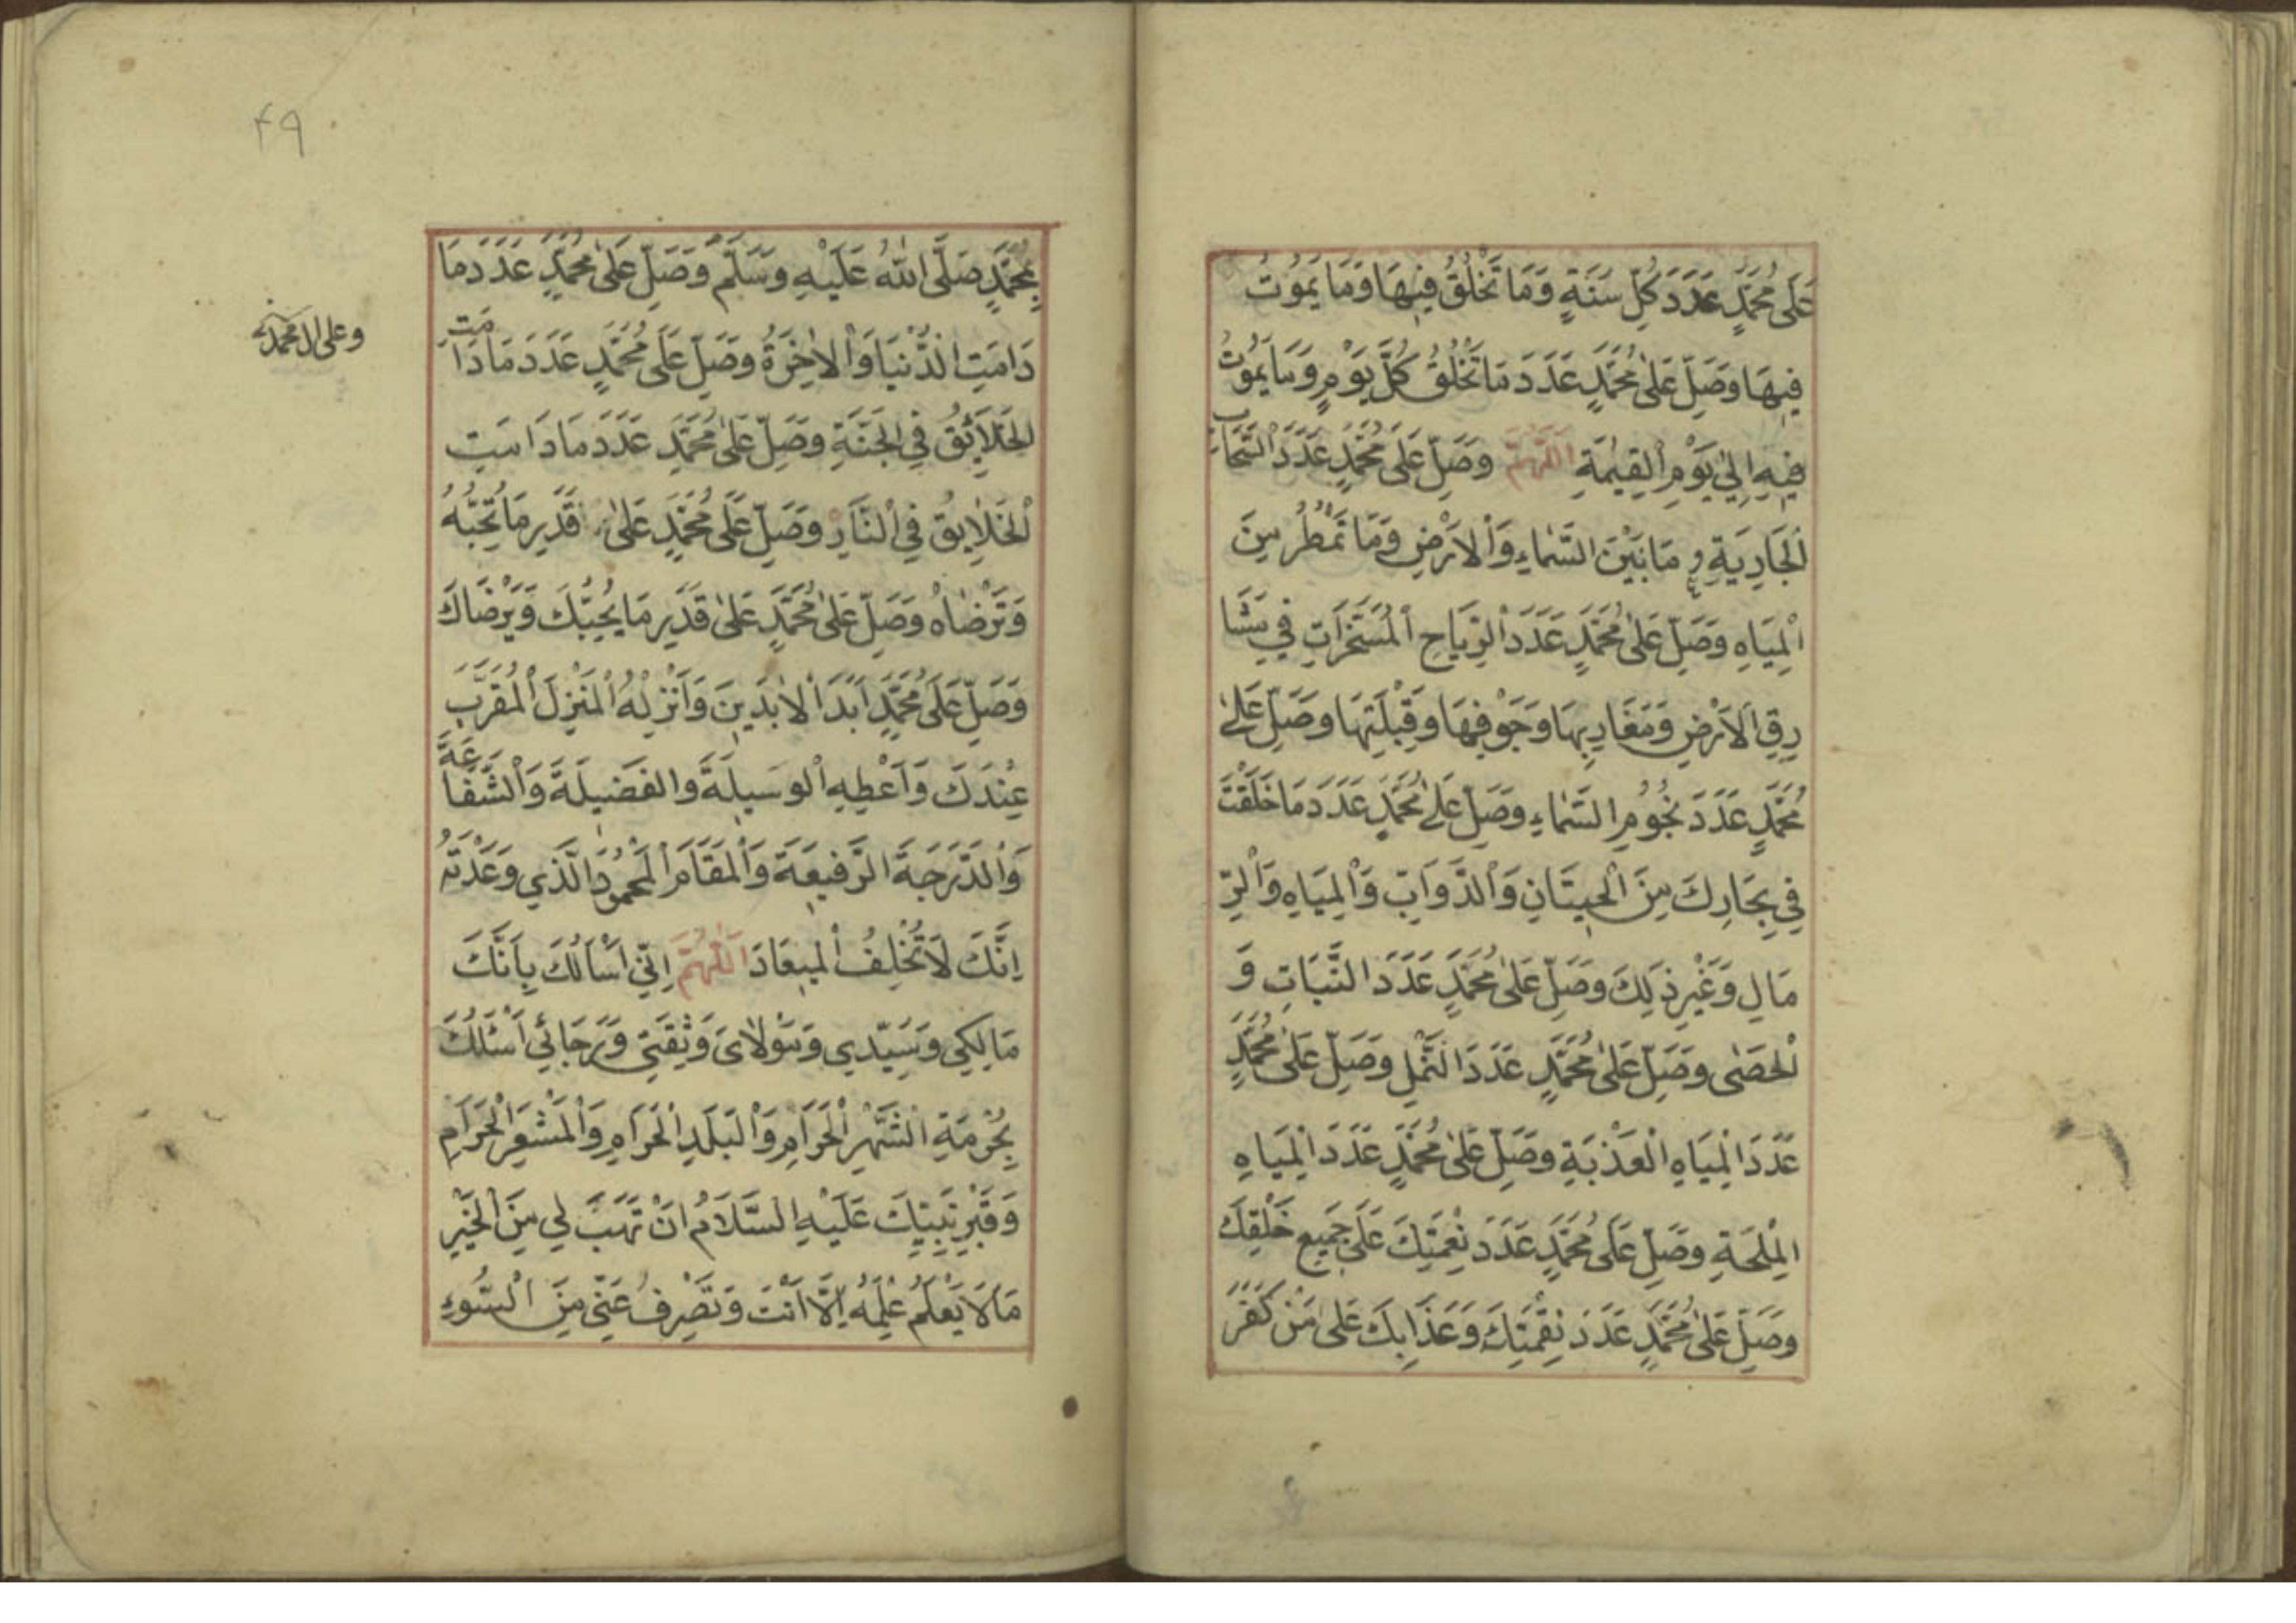 عَلَى مُحَمَّدٍ عَدَدَ كُلِّ سَنَةٍ وَمَا تَخْلُقُ فِيهَا وَمَا يَمُوتُ
فِيهَا وَصَلِّ عَلَى مُحَمَّدٍ عَدَدَ مَا تَخْلُقُ كُلَّ يَوْمٍ وَمَا يَمُوتُ
فِيهِ اِلىٰ يَوْمِ الْقِيٰمَةِ اَللّٰهُمَّ وَصَلِّ عَلَى مُحَمَّدٍ عَدَدَ السَّحَابِ
اَلْجَارِيَةِ مَا بَيْنَ السَّمَاءِ وَالْاَرْضِ وَمَا تَمْطُرُ مِنَ
الْمِيَاهِ وَصَلِّ عَلَى مُحَمَّدٍ عَدَدَ الرِّيَاحِ الْمُسَخَّرَاتِ فِي مَشَا
رِقِ الْاَرْضِ وَمَغَارِبِهَا وَجَوْفِهَا وَقِبْلَتِهَا وَصَلِّ عَلَى
مُحَمَّدٍ عَدَدَ نُجُومِ السَّمَاءِ وَصَلِّ عَلَى مُحَمَّدٍ عَدَدَ مَا خَلَقْتَ
فِي بِحَارِكَ مِنَ الْحِيتَانِ وَالدَّوَابِّ وَالْمِيَاهِ وَالرِّ
مَالِ وَغَيْرِ ذٰلِكَ وَصَلِّ عَلَى مُحَمَّدٍ عَدَدَ النَّبَاتِ وَ
الْحَصٰى وَصَلِّ عَلَى مُحَمَّدٍ عَدَدَ النَّمْلِ وَصَلِّ عَلَى مُحَمَّدٍ
عَدَدَ الْمِيَاهِ الْعَذْبَةِ وَصَلِّ عَلَى مُحَمَّدٍ عَدَدَ الْمِيَاهِ
الْمِلْحَةِ وَصَلِّ عَلَى مُحَمَّدٍ عَدَدَ نِعْمَتِكَ عَلَى جَمِيعِ خَلْقِكَ
وَصَلِّ عَلَى مُحَمَّدٍ عَدَدَ نِقْمَتِكَ وَعَذَابِكَ عَلَى مَنْ كَفَرَ
۴۹
بِمُحَمَّدٍ صَلَّى اللّٰهُ عَلَيْهِ وَسَلَّمَ وَصَلِّ عَلَى مُحَمَّدٍ عَدَدَ مَا
دَامَتِ الدُّنْيَا وَالْاٰخِرَةُ وَصَلِّ عَلَى مُحَمَّدٍ عَدَدَ مَا دَامَتِ
الْخَلَائِقُ فِي الْجَنَّةِ وَصَلِّ عَلَى مُحَمَّدٍ عَدَدَ مَا دَامَتِ
الْخَلَايِقُ فِي النَّارِ وَصَلِّ عَلَى مُحَمَّدٍ عَلَى قَدْرِ مَا تُحِبُّهُ
وَتَرْضَاهُ وَصَلِّ عَلَى مُحَمَّدٍ عَلَى قَدْرِ مَا يُحِبُّكَ وَيَرْضَاكَ
وَصَلِّ عَلَى مُحَمَّدٍ اَبَدَ الْاٰبِدِينَ وَاَنْزِلْهُ الْمَنْزِلَ الْمُقَرَّبَ
عِنْدَكَ وَاَعْطِهِ الْوَسِيلَةَ وَالْفَضِيلَةَ وَالشَّفَاعَةَ
وَالدَّرَجَةَ الرَّفِيعَةَ وَالْمَقَامَ الْمَحْمُودَ الَّذِي وَعَدْتَهُ
اِنَّكَ لَا تُخْلِفُ الْمِيعَادَ اَللّٰهُمَّ اِنِّي اَسْاَلُكَ بِاَنَّكَ
مَالِكِي وَسَيِّدِي وَمَوْلَايَ وَثِقَتِي وَرَجَائِي اَسْئَلُكَ
بِحُرْمَةِ الشَّهْرِ الْحَرَامِ وَالْبَلَدِ الْحَرَامِ وَالْمَشْعَرِ الْحَرَامِ
وَقَبْرِ نَبِيِّكَ عَلَيْهِ السَّلَامُ اَنْ تَهَبَ لِي مِنَ الْخَيْرِ
مَا لَا يَعْلَمُ عِلْمَهُ اِلَّا اَنْتَ وَتَصْرِفُ عَنِّي مِنَ السُّوءِ
وعلى ال محمد